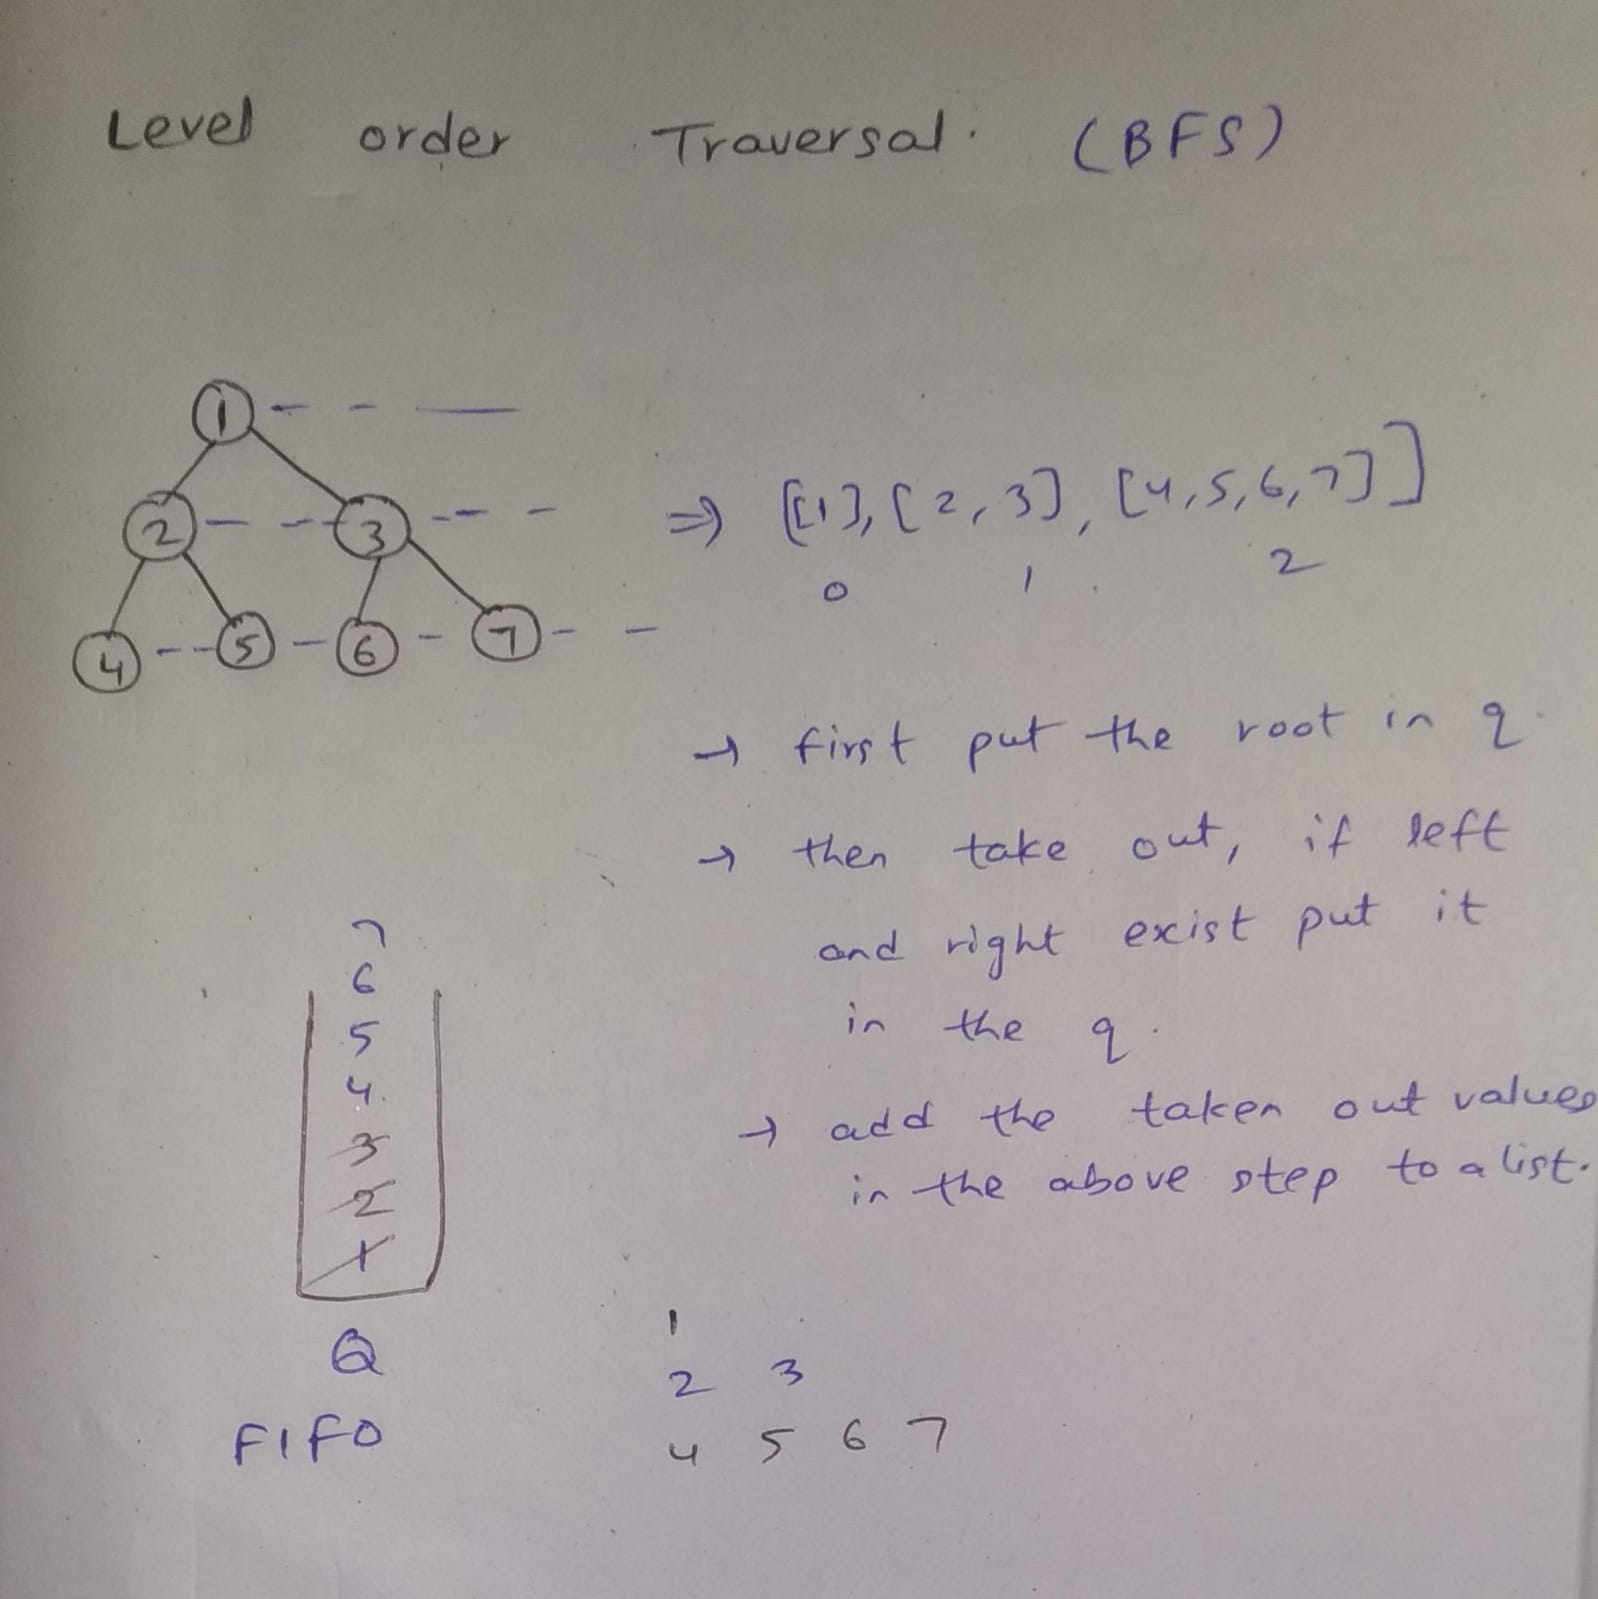 Level order Traversal. (BFS)
1
2 3
4 5 6 7
⇒ [[1], [2, 3], [4,5,6,7]]
0 1 2
→ first put the root in q.
→ then take out, if left
and right exist put it
in the q.
→ add the taken out values
in the above step to a list.
7
6
5
4
3
2
1
Q
FIFO
1
2 3
4 5 6 7